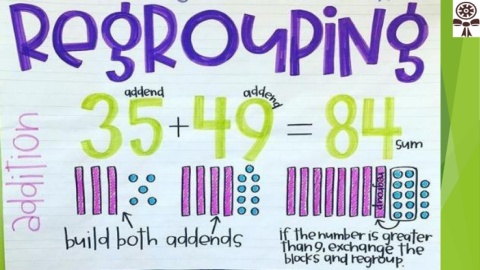 REGROUPING
addition
addend
addend
35 + 49 = 84
sum
regroup
build both addends
if the number is greater
than 9, exchange the
blocks and regroup.